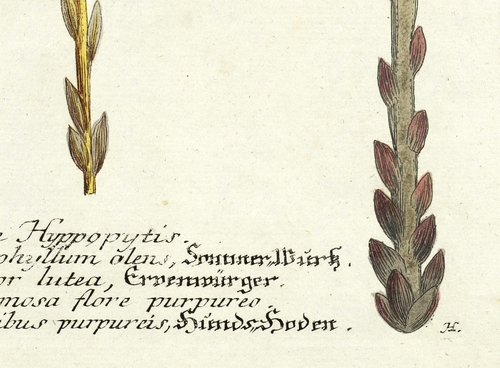 Hyppopytis.
phyllum olens, Sommer Wurtz.
or lutea, Ervenwürger.
mosa flore purpureo.
ibus purpureis, Hunds Hoden.
H.